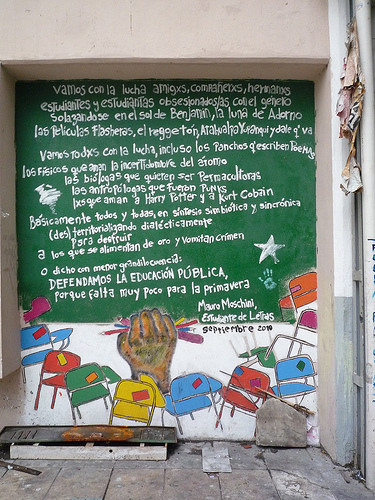 Vamos con la lucha amigxs, compañerxs, hermanxs
estudiantes y estudiantas obsesionados/as con el género
solazándose en el sol de Benjamin, la luna de Adorno
las películas flasheras, el reggetón, Atahualpa Yupanqui y dale q' va
Vamos todxs con la lucha, incluso los Panchos q' escriben Poemas
los físicos que aman la incertidumbre del átomo
las biólogas que quieren ser Permacultoras
las antropólogas que fueron Punks
lxs que aman a Harry Potter y a Kurt Cobain
Básicamente todos y todas, en síntesis simbiótica y sincrónica
(des)territorializando dialécticamente
Para destruir
a los que se alimentan de oro y vomitan crimen
O dicho con menor grandilocuencia:
DEFENDAMOS LA EDUCACIÓN PÚBLICA,
Porque falta muy poco para la primavera
Mauro Moschini,
Estudiante de Letras
septiembre 2010